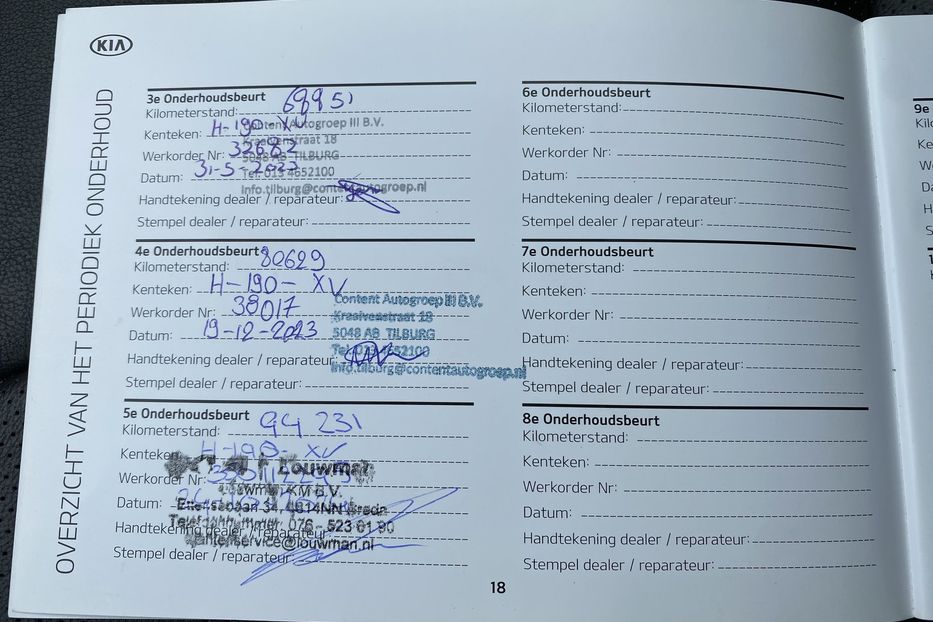 KIA
OVERZICHT VAN HET PERIODIEK ONDERHOUD
3e Onderhoudsbeurt
Kilometerstand: 68951
Kenteken: H-190-XV
Werkorder Nr: 32682
Datum: 31-5-2023
Handtekening dealer / reparateur:
Stempel dealer / reparateur:
Content Autogroep III B.V.
Kraaivenstraat 18
5048 AB TILBURG
Tel. 013 4652100
info.tilburg@contentautogroep.nl
4e Onderhoudsbeurt
Kilometerstand: 80629
Kenteken: H-190-XV
Werkorder Nr: 38017
Datum: 19-12-2023
Handtekening dealer / reparateur:
Stempel dealer / reparateur:
Content Autogroep III B.V.
Kraaivenstraat 18
5048 AB TILBURG
Tel. 013 4652100
info.tilburg@contentautogroep.nl
5e Onderhoudsbeurt
Kilometerstand: 94231
Kenteken: H-190-XV
Werkorder Nr:
Datum:
Handtekening dealer / reparateur:
Stempel dealer / reparateur:
Louwman
Louwman KM B.V.
Ettensebaan 34, 4814NN Breda
Telefoonnummer: 076 - 523 01 90
klantenservice@louwman.nl
6e Onderhoudsbeurt
Kilometerstand:
Kenteken:
Werkorder Nr:
Datum:
Handtekening dealer / reparateur:
Stempel dealer / reparateur:
7e Onderhoudsbeurt
Kilometerstand:
Kenteken:
Werkorder Nr:
Datum:
Handtekening dealer / reparateur:
Stempel dealer / reparateur:
8e Onderhoudsbeurt
Kilometerstand:
Kenteken:
Werkorder Nr:
Datum:
Handtekening dealer / reparateur:
Stempel dealer / reparateur:
18
9e